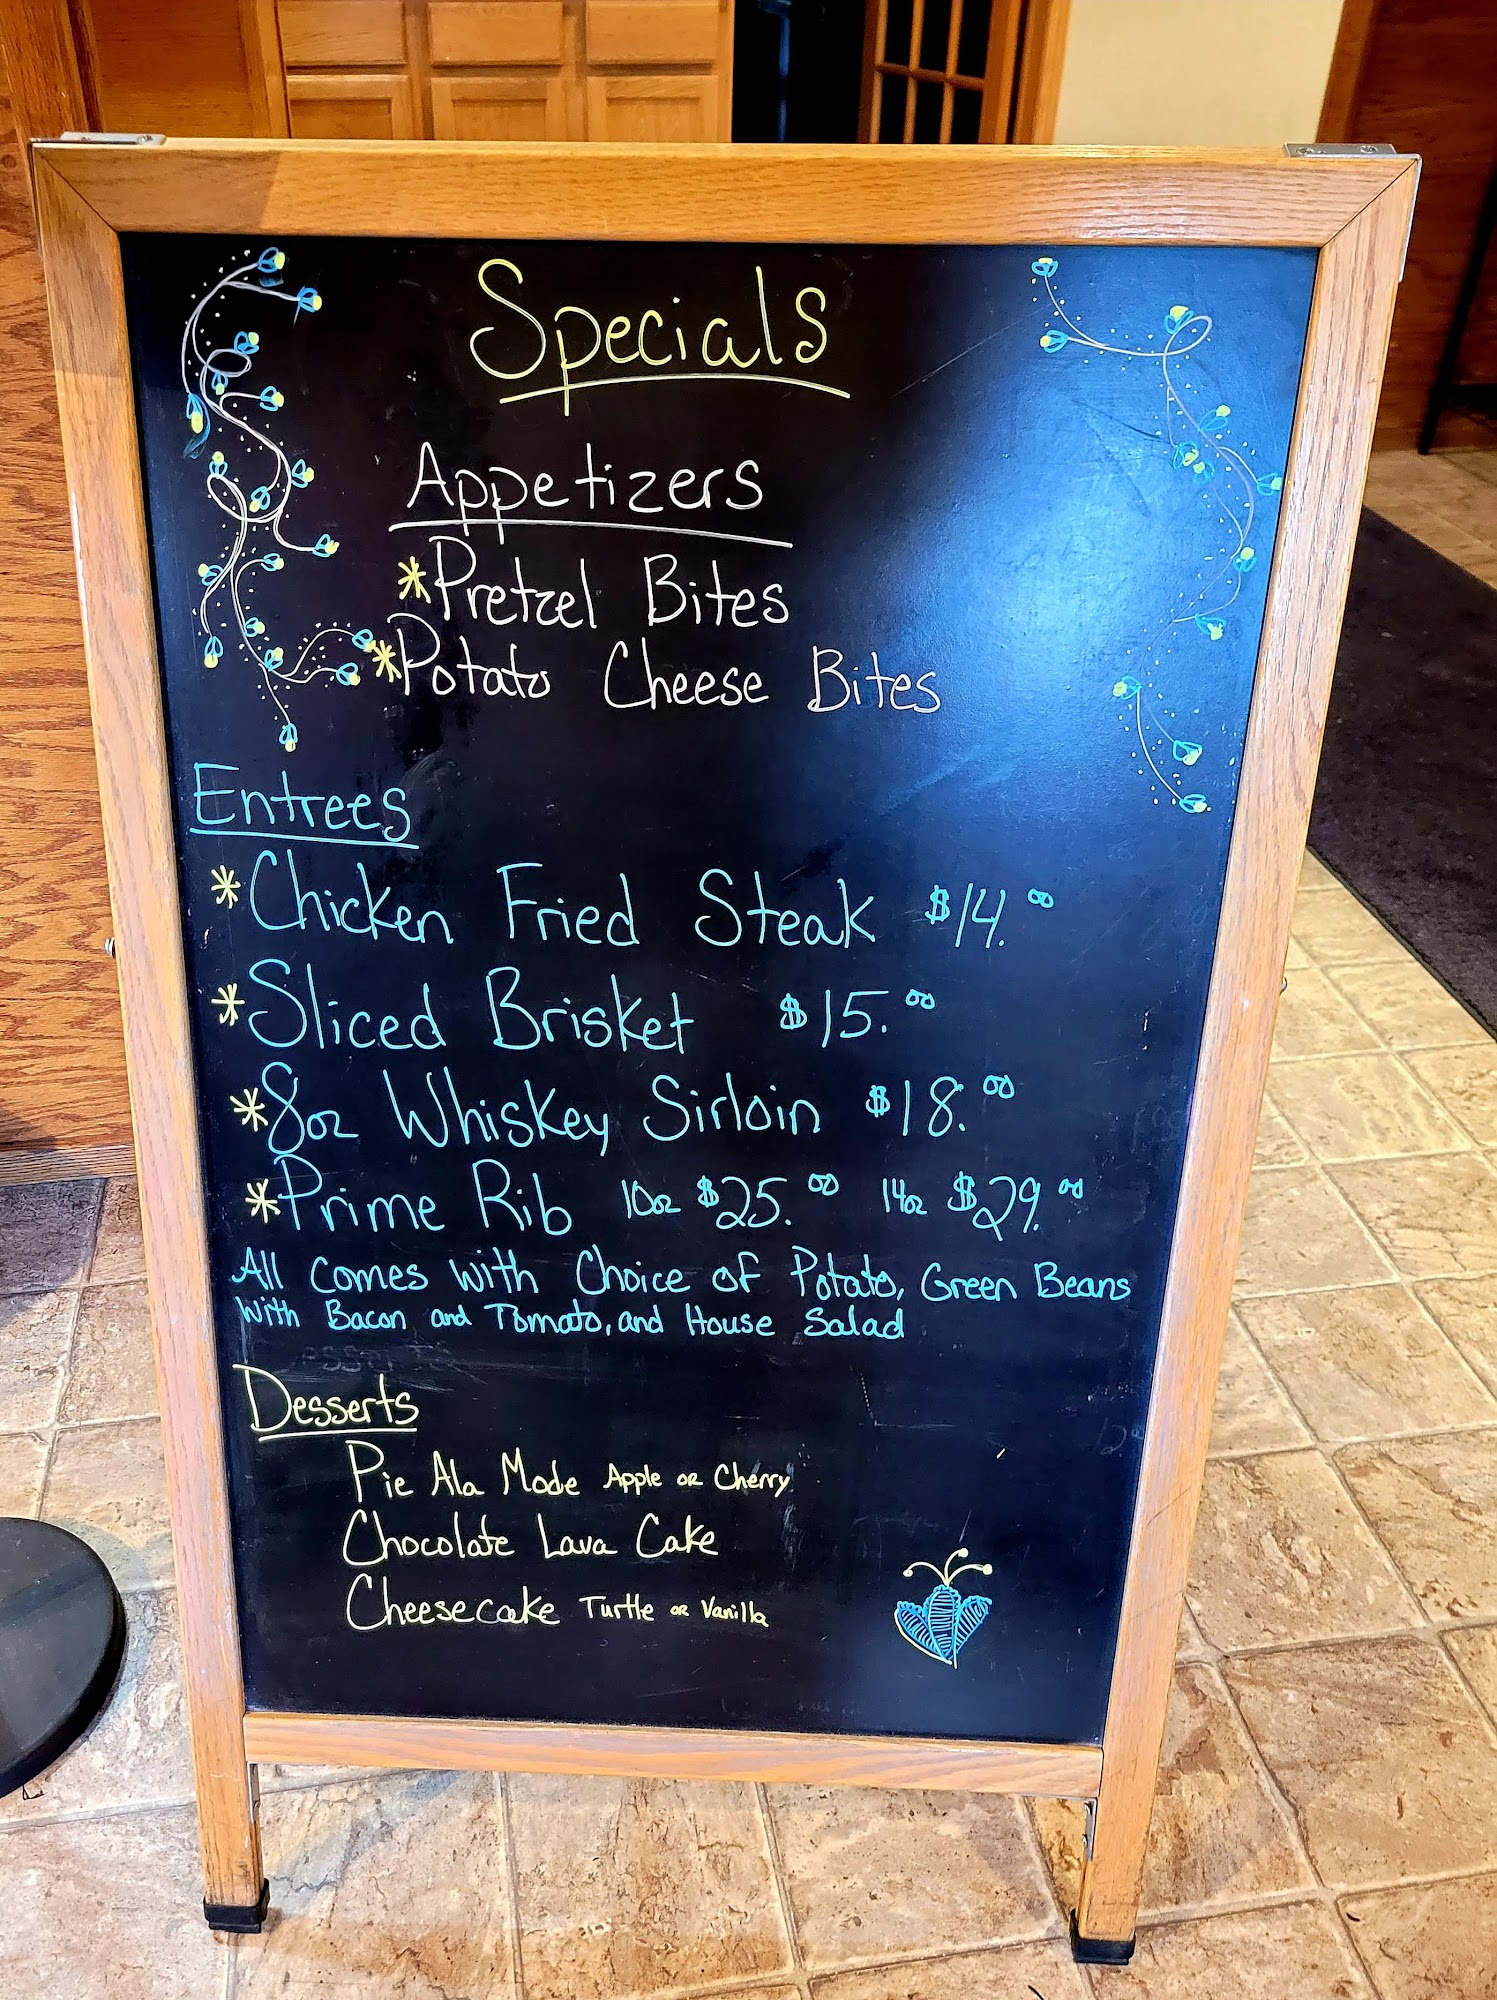 Specials
Appetizers
*Pretzel Bites
*Potato Cheese Bites
Entrees
*Chicken Fried Steak $14.00
*Sliced Brisket $15.00
*8oz Whiskey Sirloin $18.00
*Prime Rib 10oz $25.00 14oz $29.00
All comes with Choice of Potato, Green Beans
with Bacon and Tomato, and House Salad
Desserts
Pie Ala Mode Apple or Cherry
Chocolate Lava Cake
Cheesecake Turtle or Vanilla